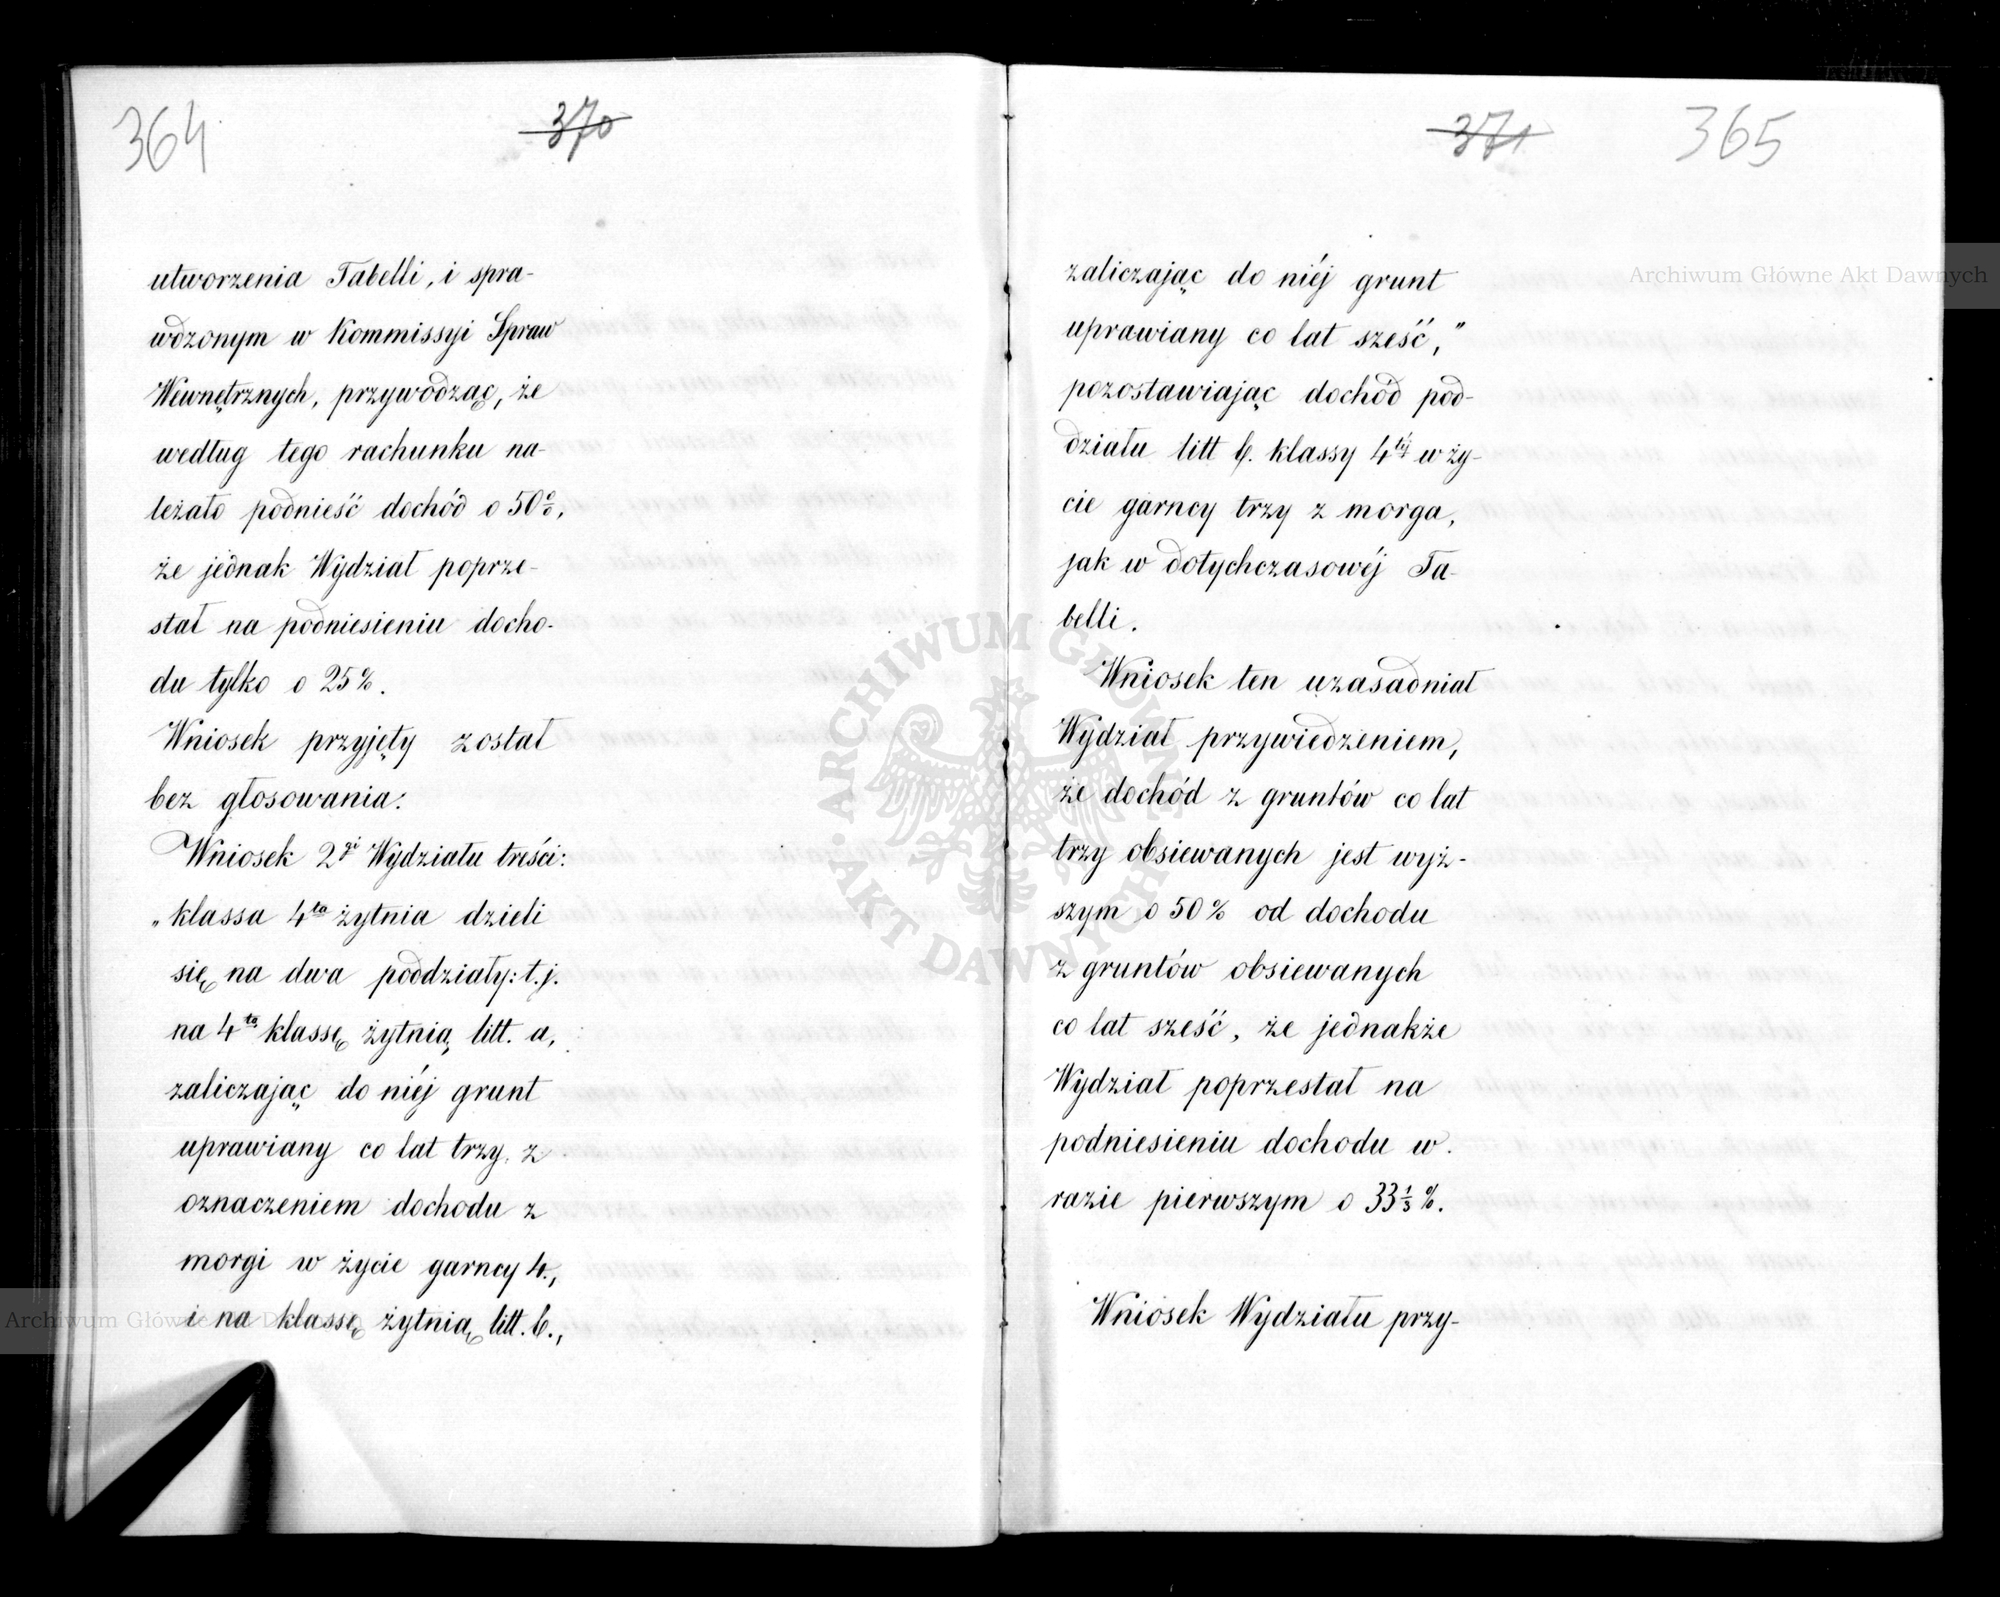 364
370
utworzenia Tabelli, i spra-
wdzonym w Kommissyi Spraw
Wewnętrznych, przywodząc, że
według tego rachunku na-
leżało podnieść dochód o 50%,
że jednak Wydział poprze-
stał na podniesieniu docho-
du tylko o 25%.
Wniosek przyjęty został
bez głosowania.
Wniosek 2gi Wydziału treści:
„klassa 4ta żytnia dzieli
się na dwa poddziały: t.j.
na 4tą klassę żytnią litt. a,
zaliczając do niéj grunt
uprawiany co lat trzy, z
oznaczeniem dochodu z
morgi w życie garncy 4.,
i na klassę żytnią litt. b.,
371
365
zaliczając do niéj grunt
uprawiany co lat sześć,"
pozostawiając dochód pod-
działu litt b. klassy 4téj w ży-
cie garncy trzy z morga,
jak w dotychczasowéj Ta-
belli.
Wniosek ten uzasadniał
Wydział przywiedzeniem,
że dochód z gruntów co lat
trzy obsiewanych jest wyż-
szym o 50% od dochodu
z gruntów obsiewanych
co lat sześć, że jednakże
Wydział poprzestał na
podniesieniu dochodu w.
razie pierwszym o 33 1/3 %.
Wniosek Wydziału przy-
Archiwum Główne Akt Dawnych
Archiwum Główne Akt Dawnych
ARCHIWUM GŁÓWNE • AKT DAWNYCH